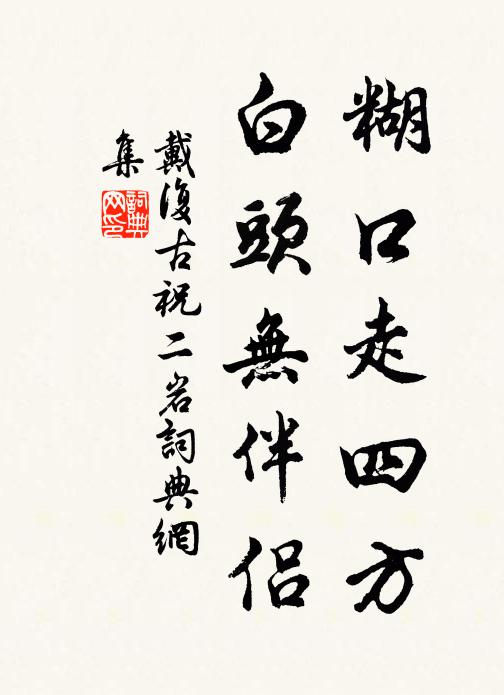 糊口走四方
白頭無伴侶
戴復古祝二岩詞典網
集
詞典
网印